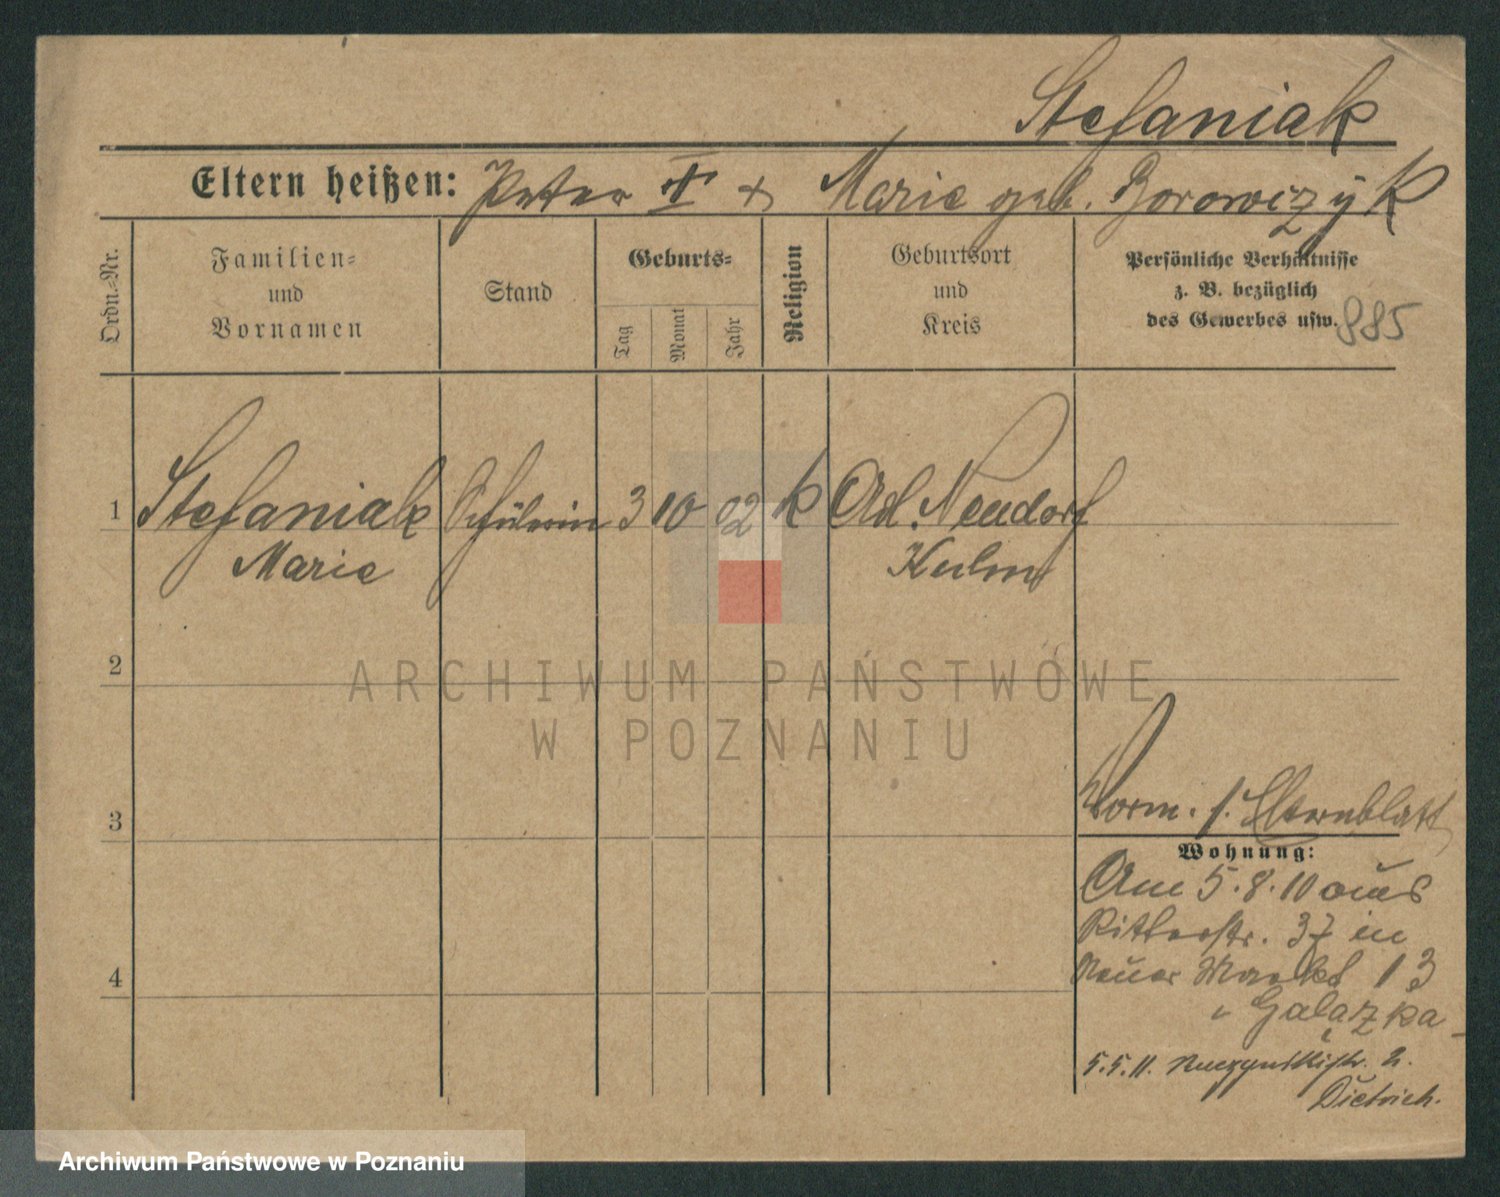 Stefaniak
Eltern heißen: Peter + Marie geb. Borowczyk
Ordn.-Nr.
Familien- und Vornamen
Stand
Geburts-
Tag
Monat
Jahr
Religion
Geburtsort und Kreis
Persönliche Verhältnisse
z. B. bezüglich
des Gewerbes usw.
885
1 Stefaniak Schülerin 3 10 02 k Adl. Neudorf
Marie Kulm
2
ARCHIWUM PAŃSTWOWE
W POZNANIU
3
Vorm. s. Elternblatt
Wohnung:
Am 5.8.10 aus
Ritterstr. 37 in
Neuer Markt 13
Gałązka
4
5.5.11. 2.
Dietrich.
Archiwum Państwowe w Poznaniu